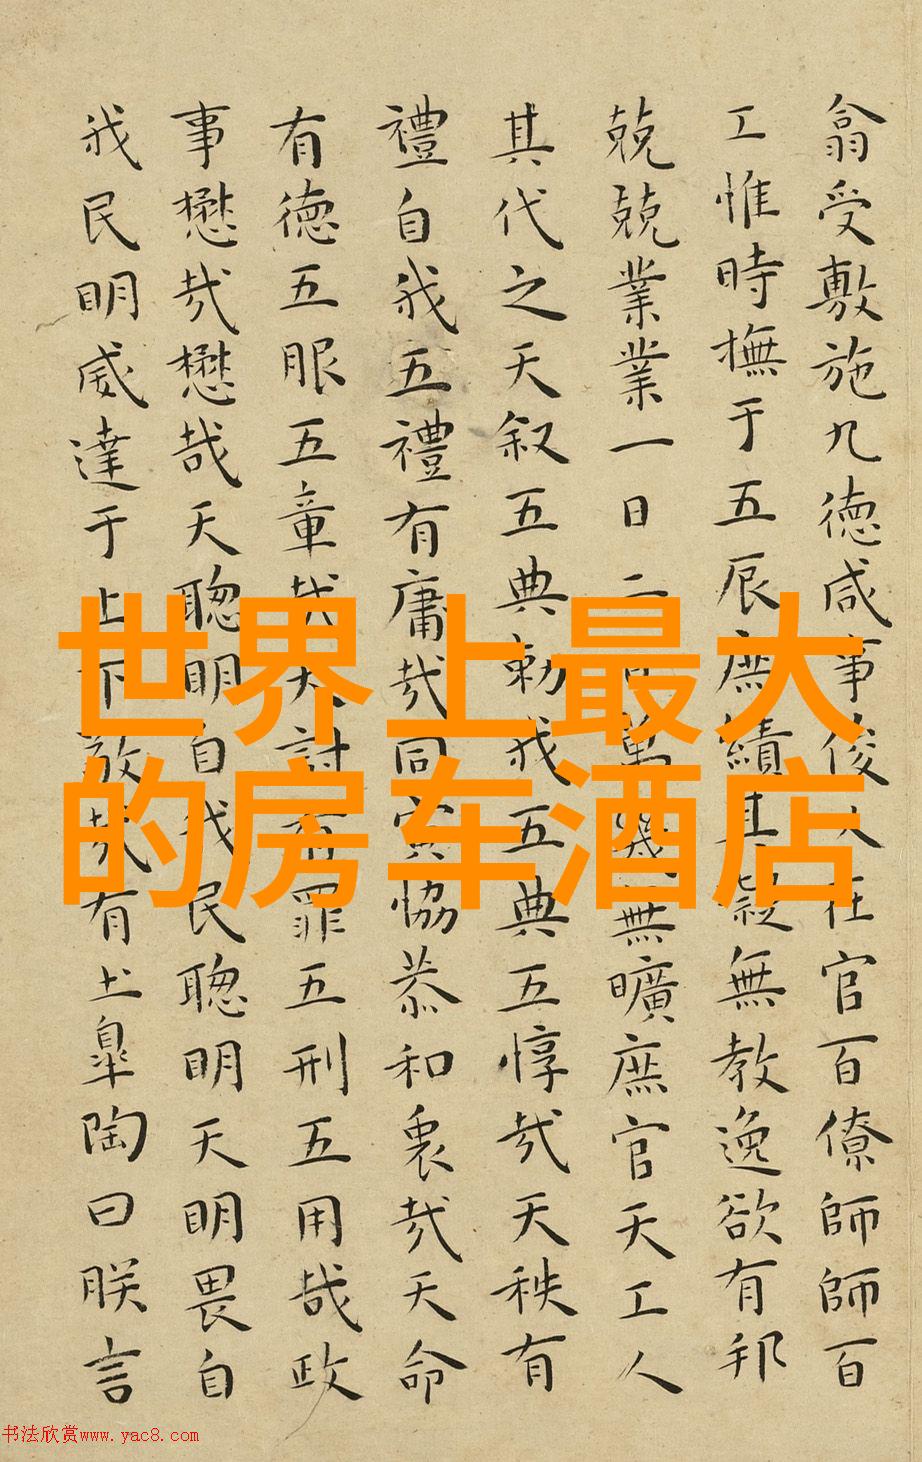 翕受敷施九德咸事俊乂在官百僚師師百
工惟時撫于五辰庶績其凝無教逸欲有邦
兢兢業業一日二日萬幾無曠庶官天工人
其代之天叙五典勑我五典五惇哉天秩有
禮自我五禮有庸哉同寅恊恭和衷哉天命
有德五服五章哉天討有罪五刑五用哉政
事懋哉懋哉天聦明自我民聦明天明畏自
我民明威達于上下敬哉有土皐陶曰朕言
世界上最大
的房车酒店
书法欣赏www.yac8.com